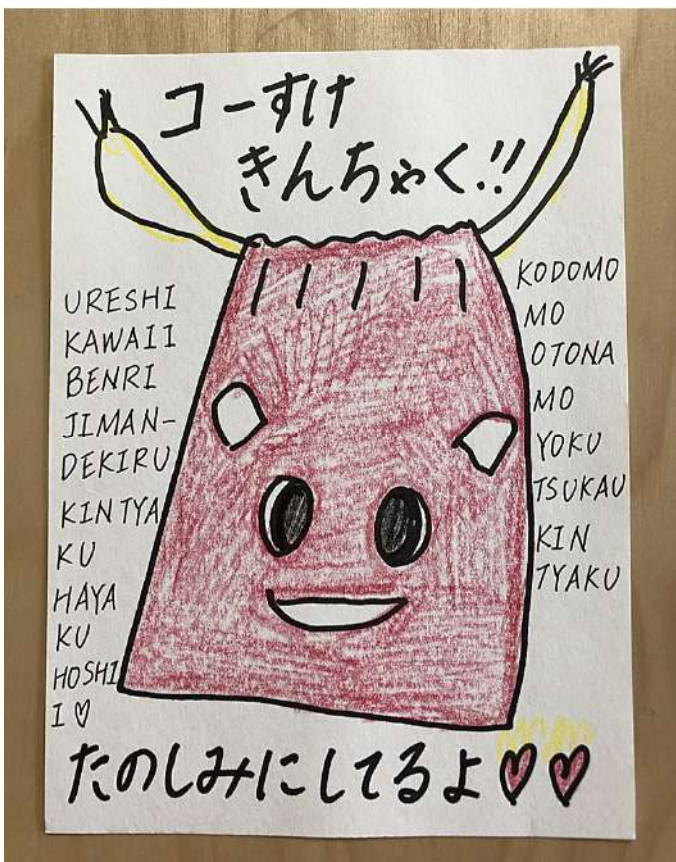 コーすけ
きんちゃく!!
URESHI
KAWAII
BENRI
JIMAN-
DEKIRU
KINTYA
KU
HAYA
KU
HOSHI
I♡
KODOMO
MO
OTONA
MO
YOKU
TSUKAU
KIN
TYAKU
たのしみにしてるよ♡♡